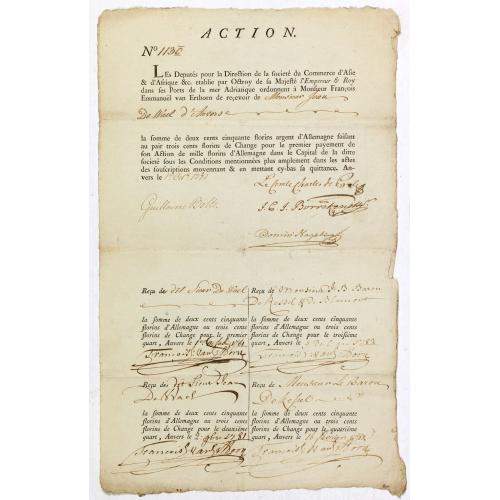 ACTION.
No. 1136
LEs Deputés pour la Direction de la société du Commerce d'Asie
& d'Afrique &c. etablie par Octroy de sa Majesté l'Empereur & Roy
dans ses Ports de la mer Adriatique ordonnent à Monsieur François
Emmanuël van Ertborn de recevoir de Monsieur Jean
De Wael d'Anvers
la somme de deux cents cinquante florins argent d'Allemagne faisant
au pair trois cents florins de Change pour le premier payement de
son Action de mille florins d'Allemagne dans le Capital de la ditte
société sous les Conditions mentionnées plus amplement dans les actes
des souscriptions moyennant & en mettant cy-bas sa quittance. An-
vers le 1781
Le Comte Charles de
Guillaume Bolts
J. C. J.
Reçu de dit Sieur De Wael
la somme de deux cents cinquante
florins d'Allemagne ou trois cents
florins de Change pour le premier
quart, Anvers le 1781
François E. van Ertborn
Reçu de Monsieur J. B. Baron
De Kessel & de Blamont
la somme de deux cents cinquante
florins d'Allemagne ou trois cents
florins de Change pour le troisième
quart, Anvers le
François E. van Ertborn
Reçu de dit Sieur Jean
De Wael
la somme de deux cents cinquante
florins d'Allemagne ou trois cents
florins de Change pour le deuxième
quart, Anvers le 2 1781
François E. van Ertborn
Reçu de Monsieur Le Baron
De Kessel
la somme de deux cents cinquante
florins d'Allemagne ou trois cents
florins de Change pour le quatrième
quart, Anvers le 16
François E. van Ertborn